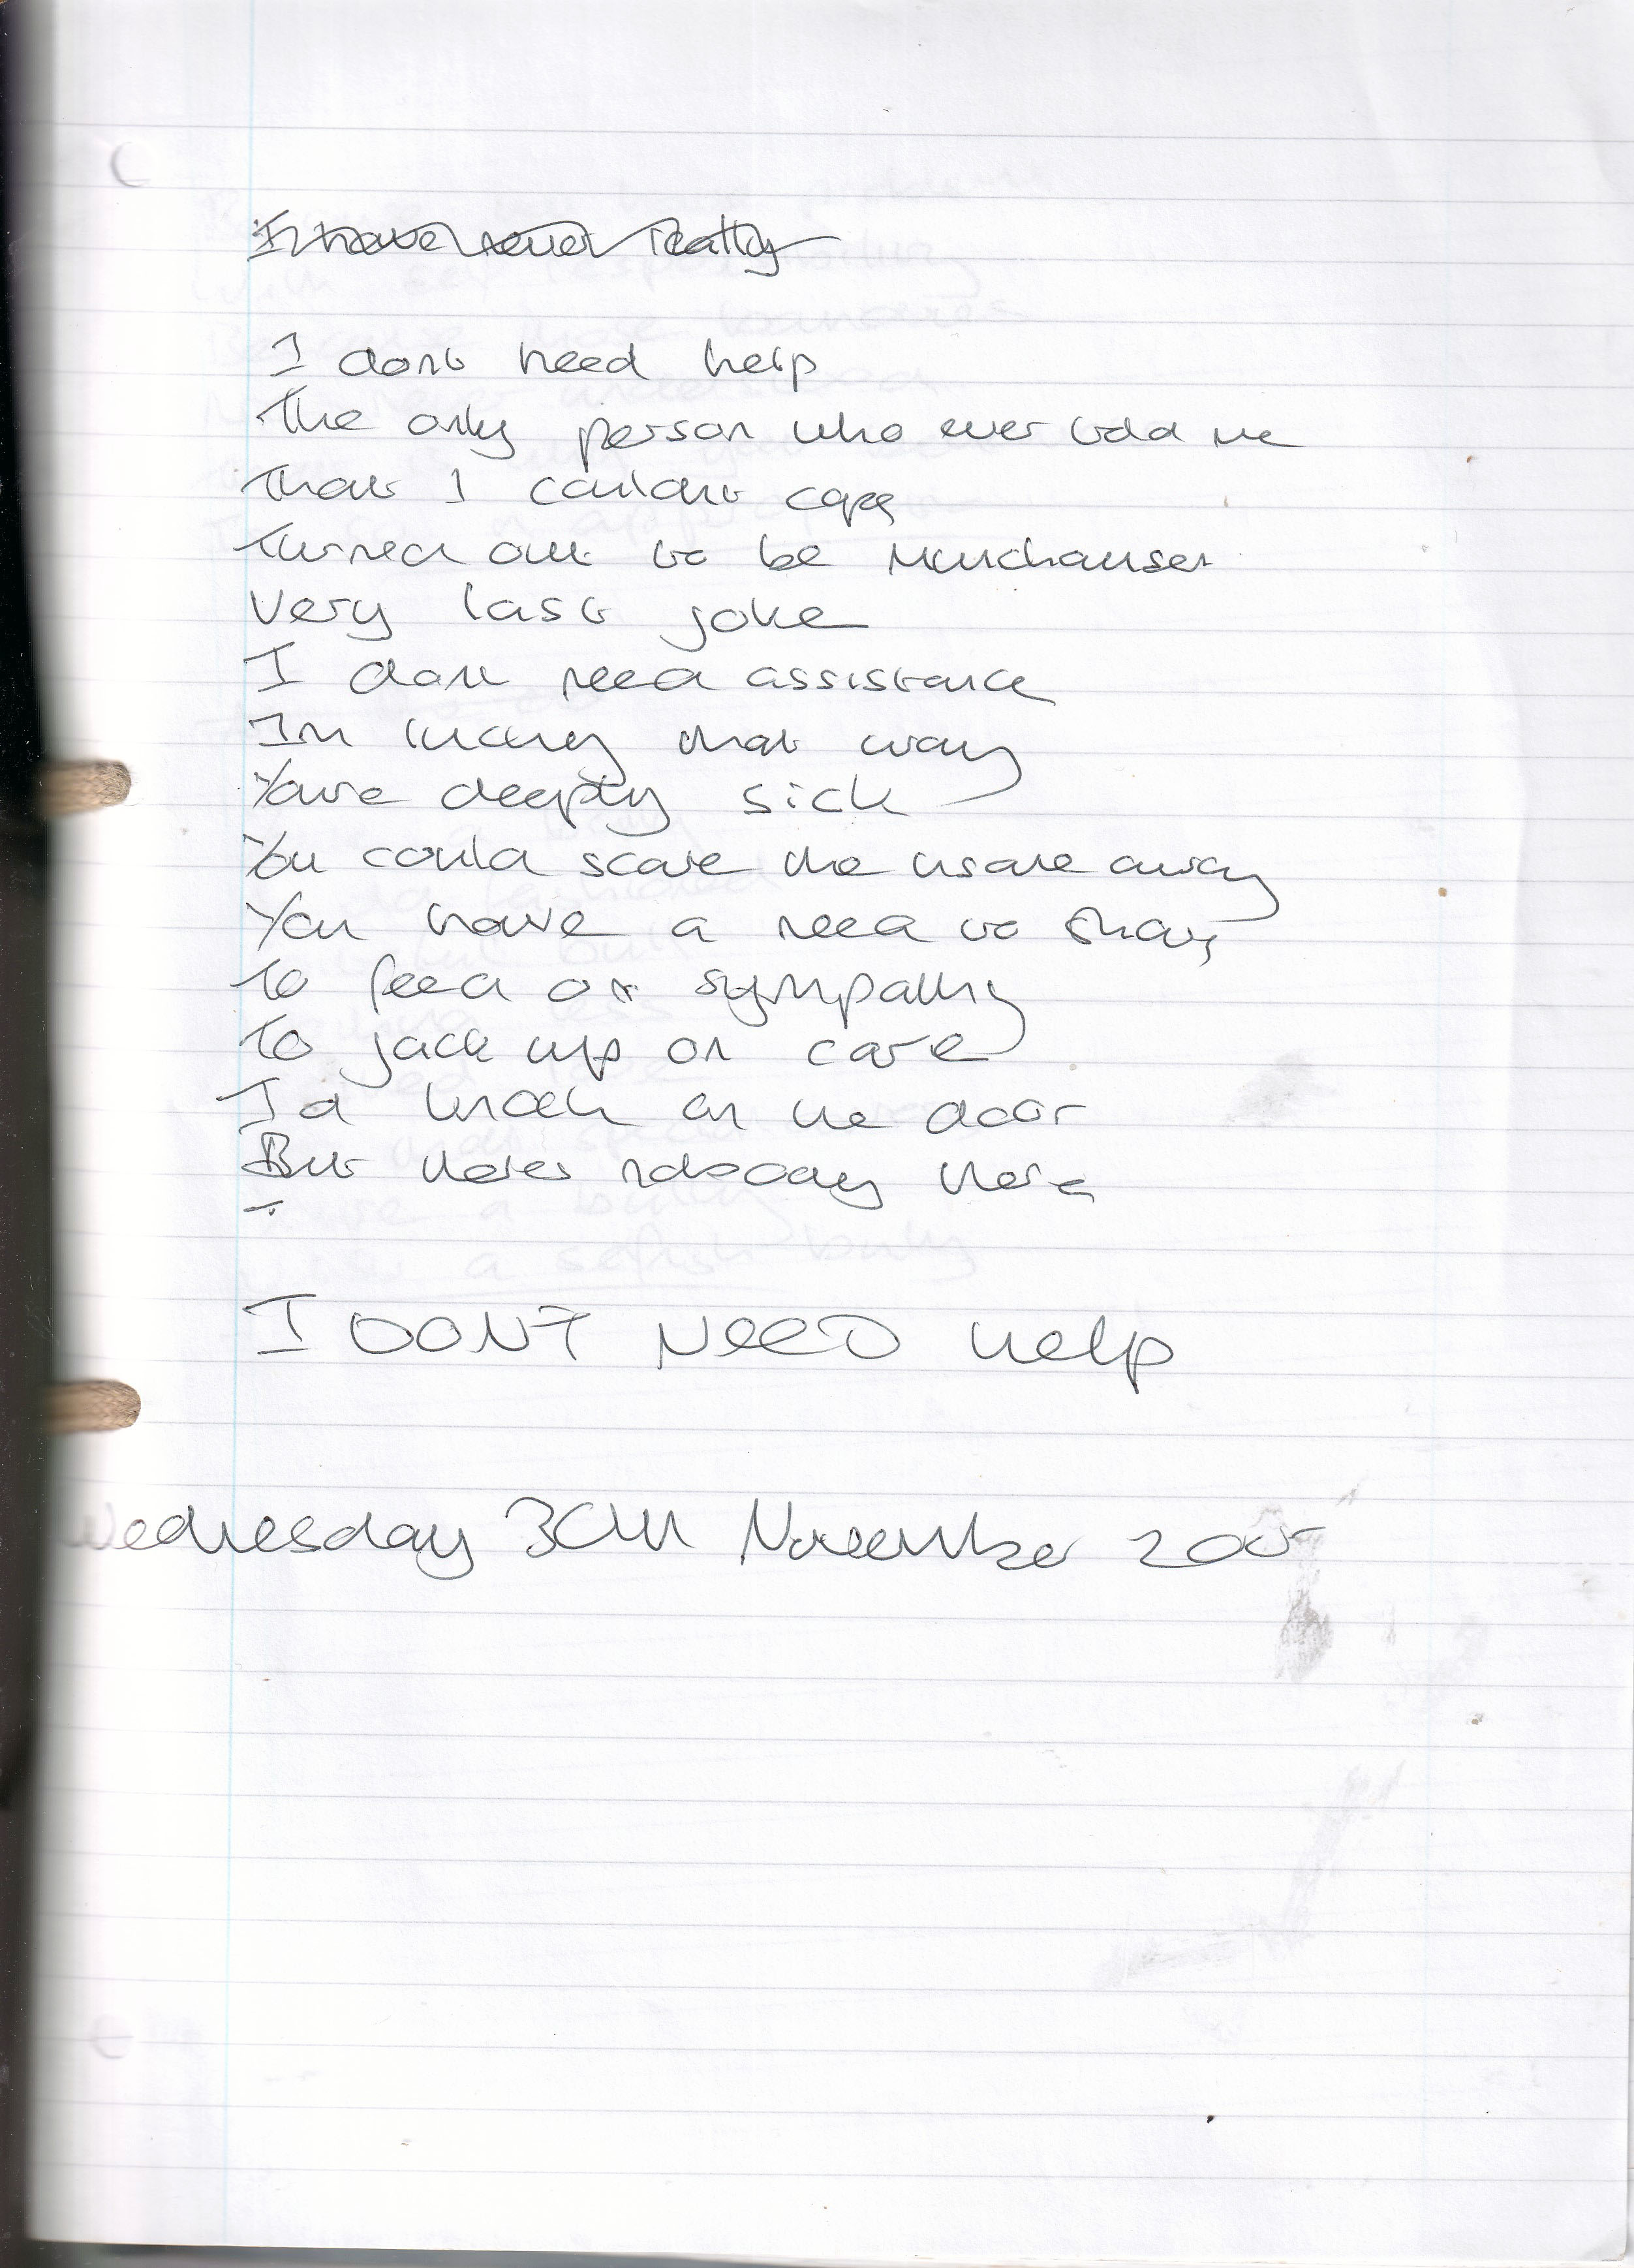 I have never really
I dont need help
The only person who ever told me
That I couldnt cope
Turned out to be Munchausen
Very last joke
I dont need assistance
Im lucky that way
Youre deeply sick
You could scare the away
You have a need to share
To feed on sympathy
To jack up on care
Id knock on the door
But theres nobody there
I DONT NEED help
Wednesday 30th November 2005